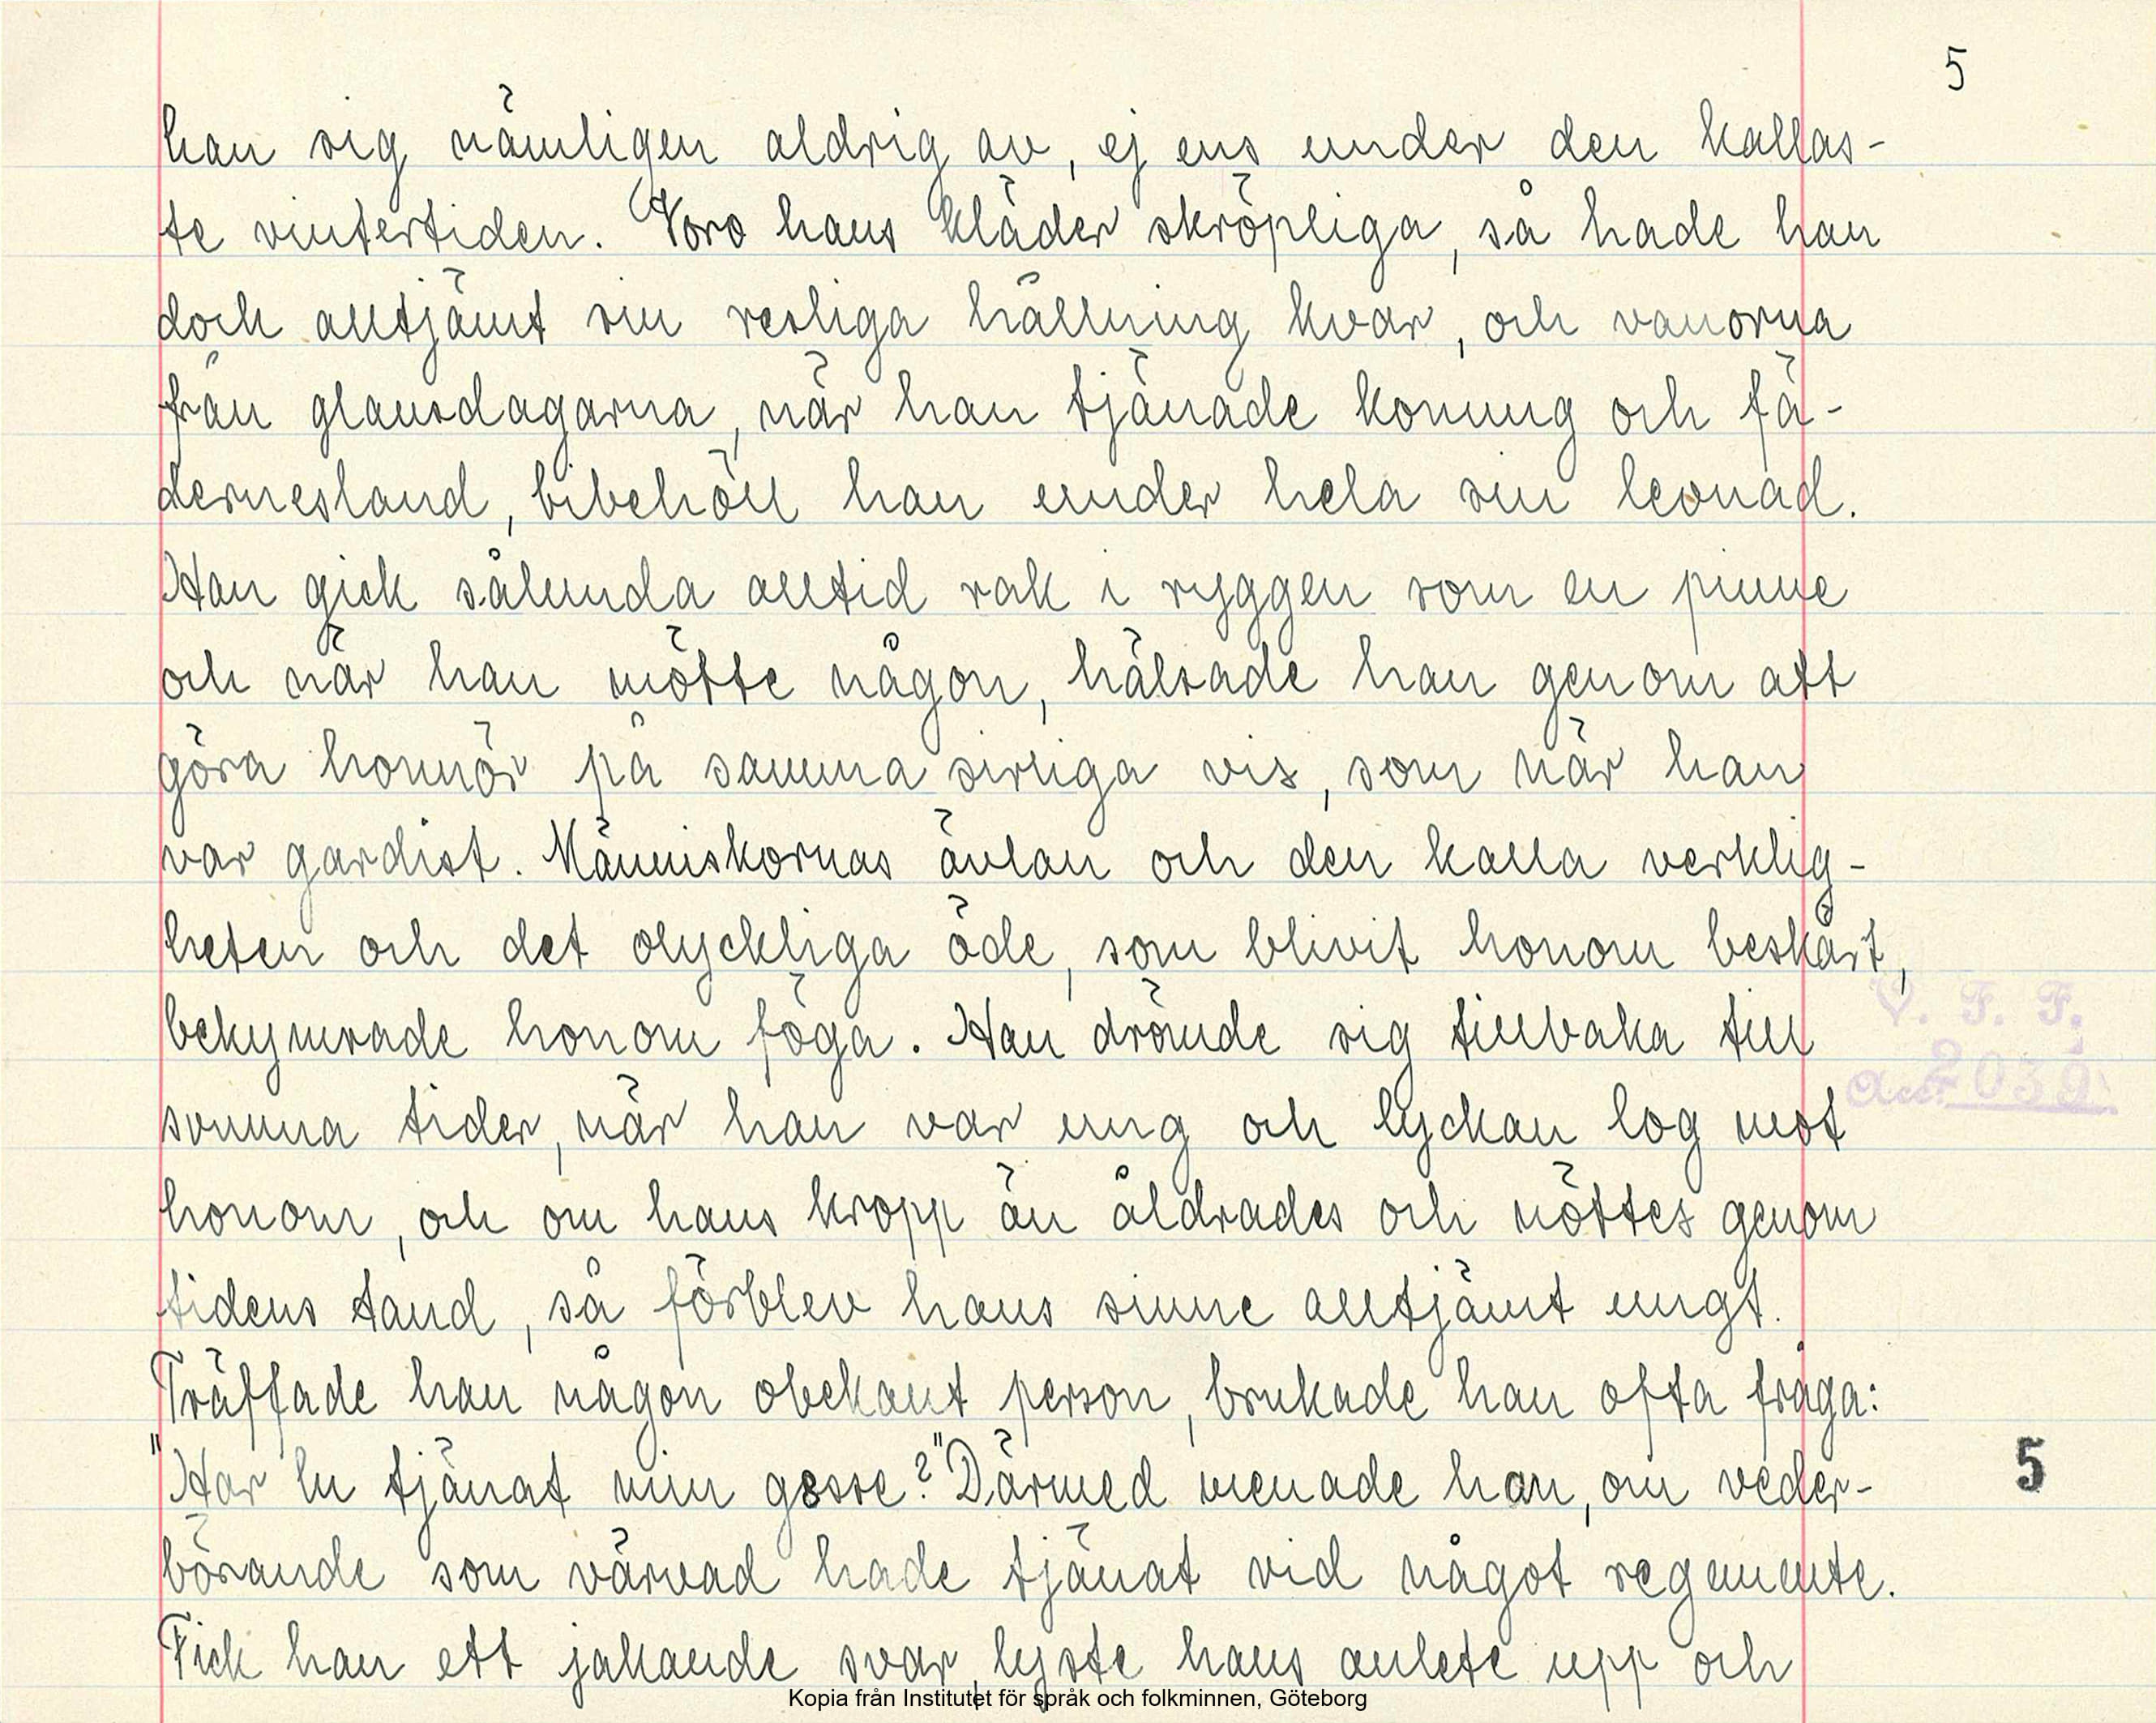 5
han sig nämligen aldrig av, ej ens under den kallas-
te vintertiden. Voro hans kläder skröpliga, så hade han
doch alltjämt sin resliga hållning kvar, och vanorna
från glansdagarna, när han tjänade konung och fä-
dernesland, bibehöll han under hela sin levnad.
Han gick sålunda alltid rak i ryggen som en pinne
och när han mötte någon, hälsade han genom att
göra honnör på samma sirliga vis, som när han
var gardist. Människornas ävlan och den kalla verklig-
heten och det olyckliga öde, som blivit honom beskärt,
bekymrade honom föga. Han drömde sig tillbaka till
svunna tider, när han var ung och lyckan log mot
honom, och om hans kropp än åldrades och nöttes genom
tidens tand, så förblev hans sinne alltjämt ungt.
Träffade han någon obekant person, brukade han ofta fråga:
"Har lu tjänat min gosse?" Därmed menade han, om veder-
börande som värvad hade tjänat vid något regemente.
Fick han ett jakande svar, lyste hans anlete upp och
V. F. F.
Acc. 2039
5
Kopia från Institutet för språk och folkminnen, Göteborg